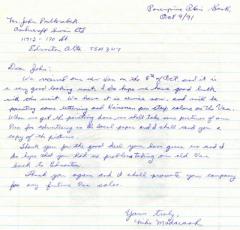 Porcupine Plain, Sask.
Oct 9/91
Mr. John
11912 - 170 St
Edmonton, Alta. T5M 3W7
Dear John:
We received our new Van on the 8th of Oct. and it is
a very good looking unit. We do hope we have good luck
with this unit. We have it in service now, and will be
painting some lettering and on the Van.
When we get the painting done, we shall take some pictures of our
Van for advertising in the local paper and I shall send you a
copy of the picture.
Thank you for the good deal you have given us and I
do hope that you had no problems taking our old Van
back to Edmonton.
Thank you again and I shall promote your company
for any future Van sales.
Yours truly,
Mike